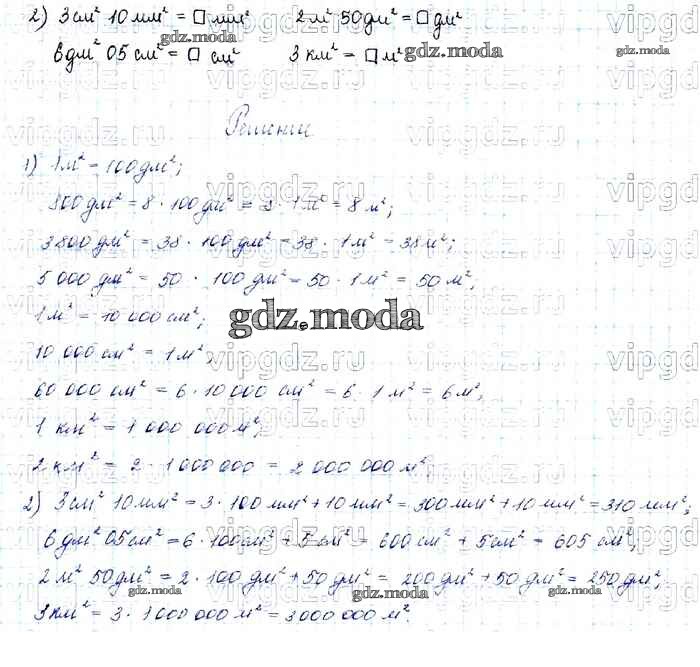 2) 3 см² 10 мм² = □ мм² 2 м² 50 дм² = □ дм²
6 дм² 05 см² = □ см² 3 км² = □ м²
gdz.moda gdz.moda
Решение
1) 1 м² = 100 дм²;
800 дм² = 8 · 100 дм² = 8 · 1 м² = 8 м²;
3800 дм² = 38 · 100 дм² = 38 · 1 м² = 38 м²;
5 000 дм² = 50 · 100 дм² = 50 · 1 м² = 50 м²;
1 м² = 10 000 см²;
gdz.moda
10 000 см² = 1 м²,
60 000 см² = 6 · 10 000 см² = 6 · 1 м² = 6 м²,
1 км² = 1 000 000 м²;
2 км² = 2 · 1 000 000 = 2 000 000 м²
2) 3 см² 10 мм² = 3 · 100 мм² + 10 мм² = 300 мм² + 10 мм² = 310 мм²;
6 дм² 05 см² = 6 · 100 см² + 5 см² = 600 см² + 5 см² = 605 см²;
2 м² 50 дм² = 2 · 100 дм² + 50 дм² = 200 дм² + 50 дм² = 250 дм²;
gdz.moda gdz.moda
3 км² = 3 · 1 000 000 м² = 3 000 000 м².